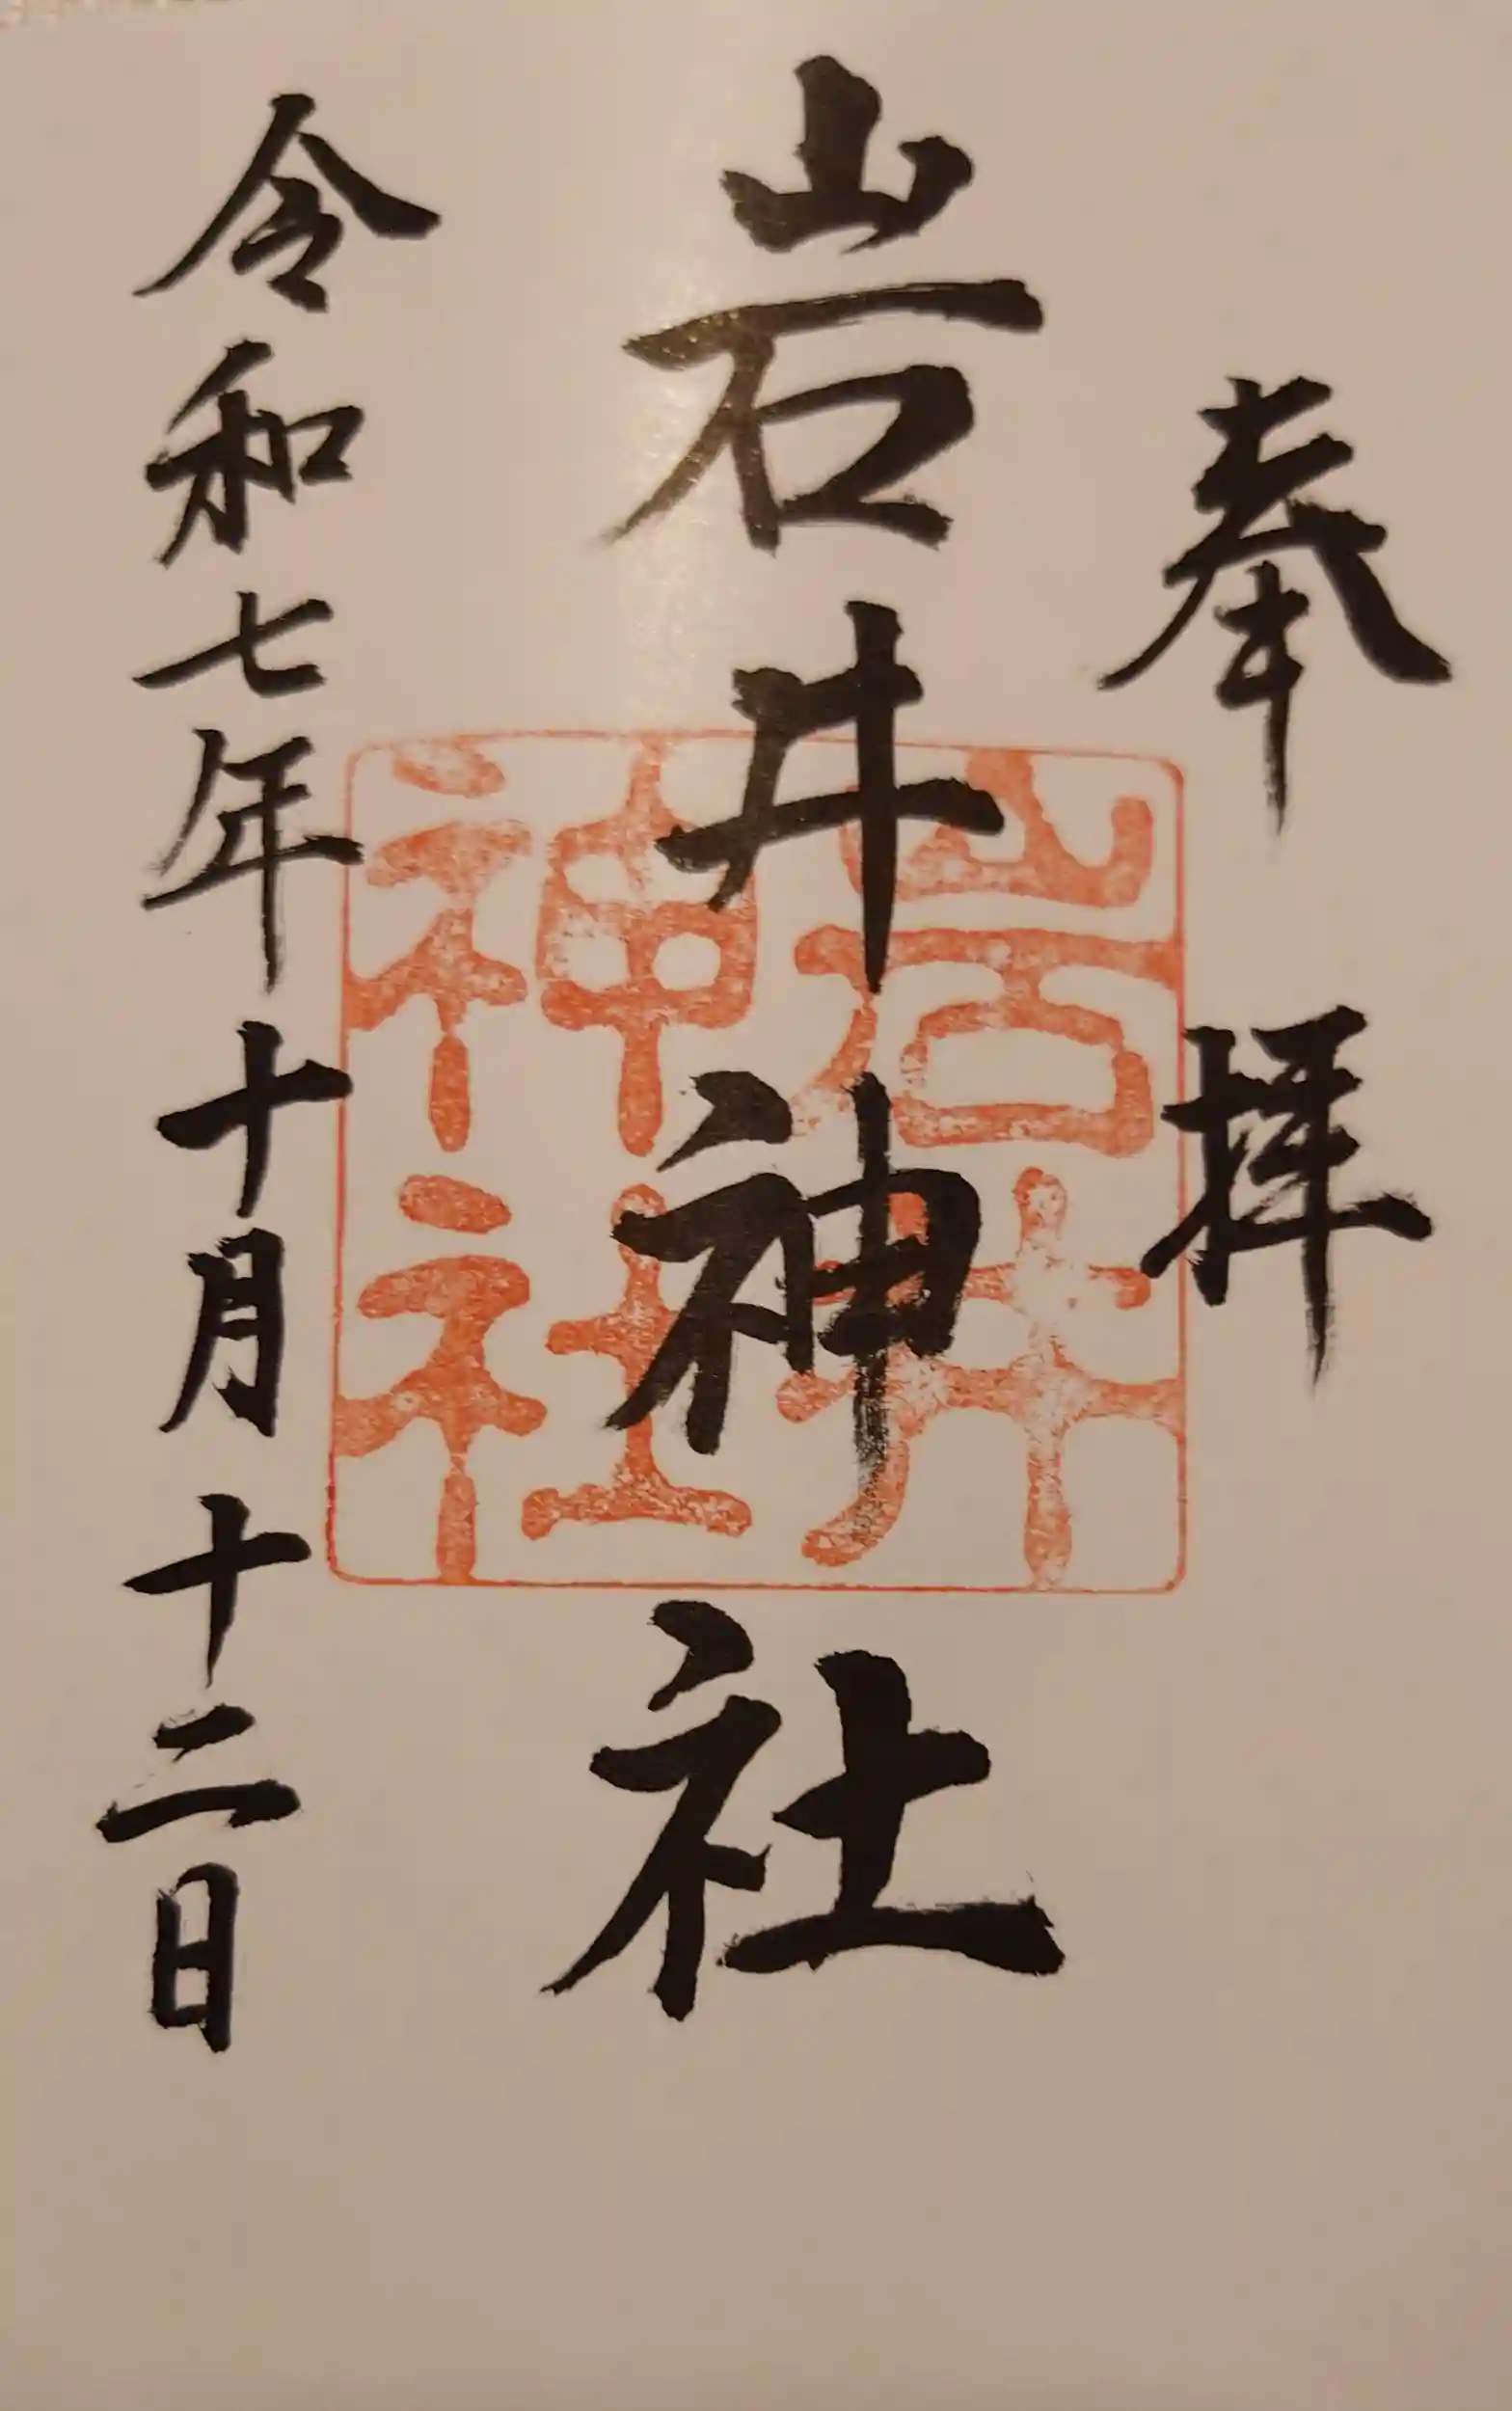 奉拝
岩井神社
岩井
神社
令和七年十月十二日